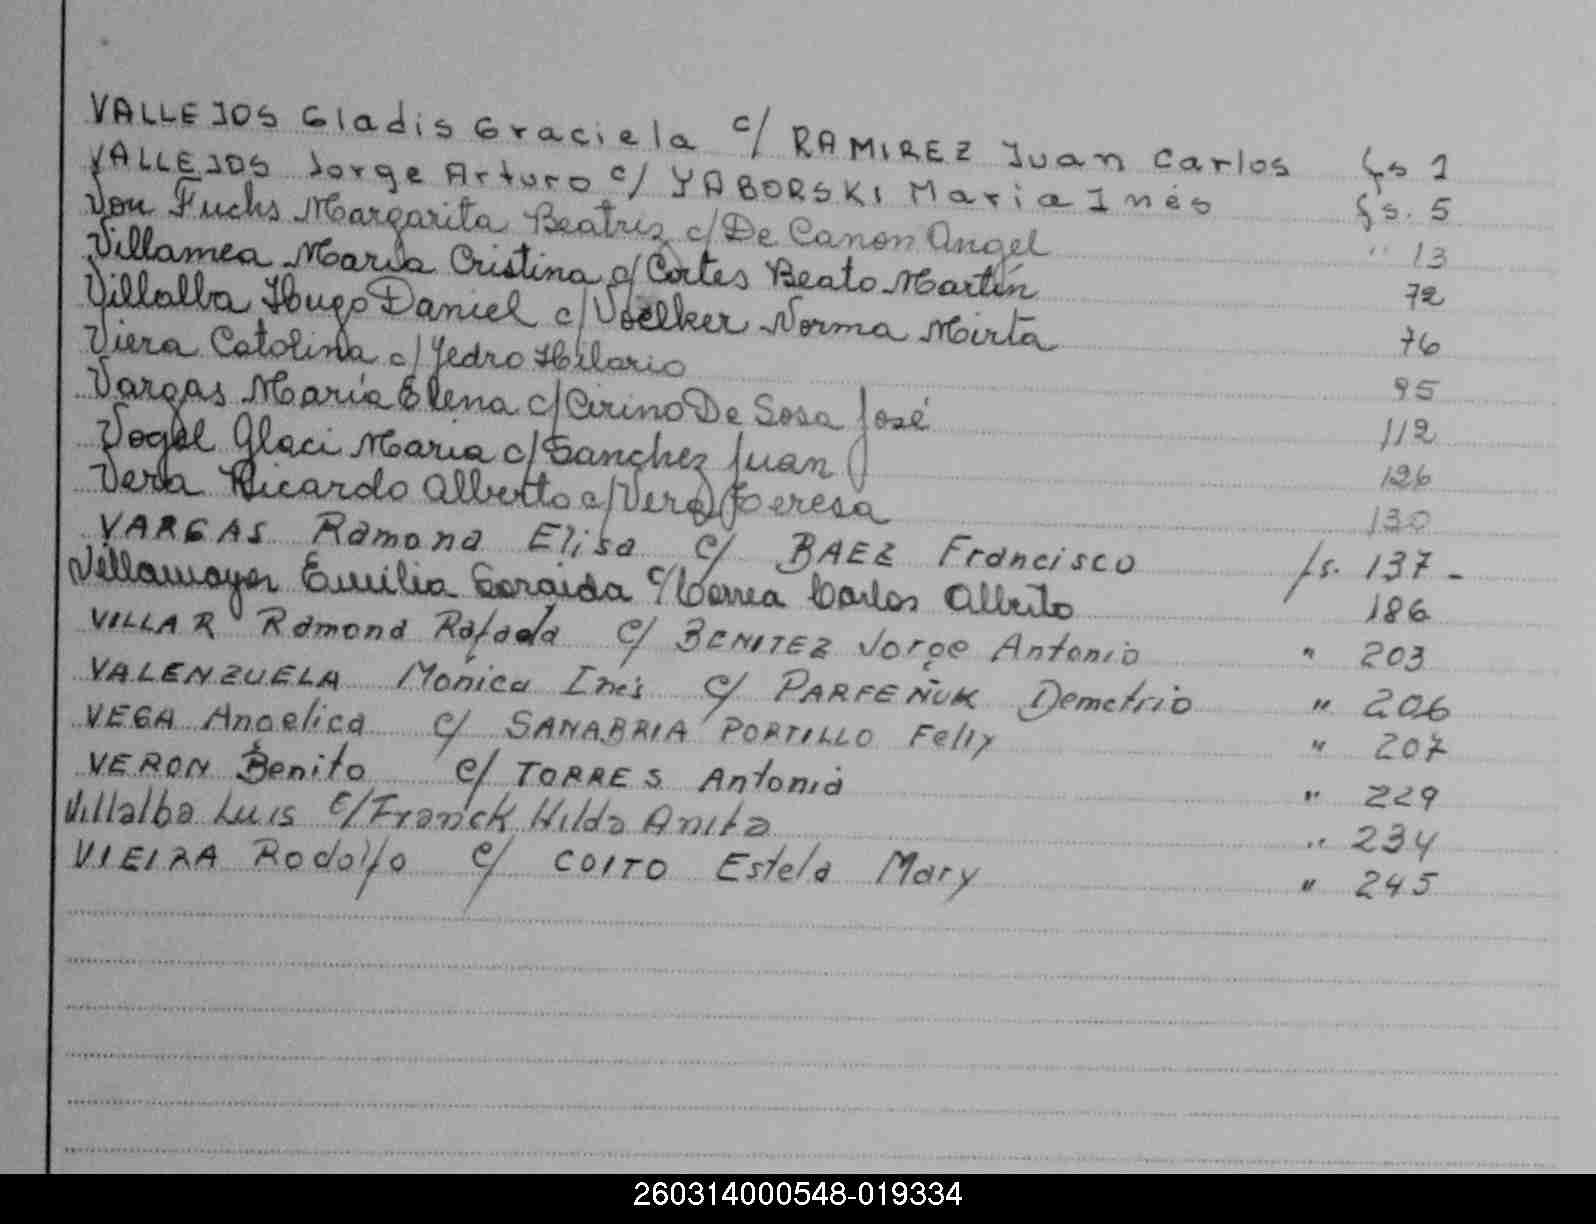 VALLEJOS Gladis Graciela c/ RAMIREZ Juan Carlos fs 1
VALLEJOS Jorge Arturo c/ YABORSKI Maria Inés fs. 5
Von Fuchs Margarita Beatriz c/ De Canon Angel " 13
Villamea Maria Cristina c/ Cortes Beato Martín 72
Villalba Hugo Daniel c/ Voelker Norma Mirta 76
Viera Catolina c/ Yedro Hilario 95
Vargas María Elena c/ Cirino De Sosa José 112
Vogel Glaci Maria c/ Sanchez Juan 126
Vera Ricardo Alberto c/ Vera Teresa 130
VARGAS Ramona Elisa c/ BAEZ Francisco fs. 137 -
Villamayor Emilia Zoraida c/ Correa Carlos Alberto 186
VILLAR Ramona Rafaela c/ BENITEZ Jorge Antonio " 203
VALENZUELA Mónica Inés c/ PARFEÑUK Demetrio " 206
VEGA Angelica c/ SANABRIA PORTILLO Felix " 207
VERON Benito c/ TORRES Antonia " 229
Villalba Luis c/ Franck Hilda Anita " 234
VIEIRA Rodolfo c/ COITO Estela Mary " 245
260314000548-019334